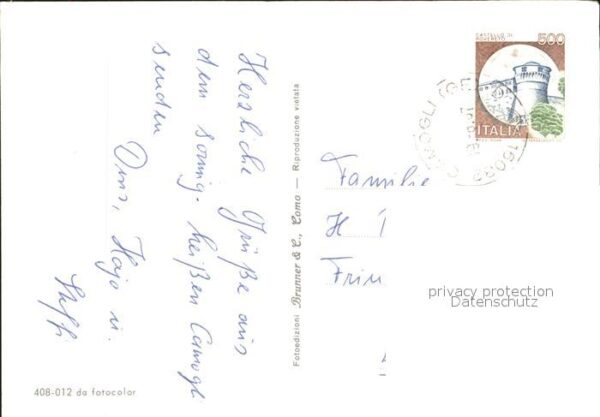 Herzliche Grüße aus
dem sonnig-heißen Camogli
senden
Hajo u.
Steffi
408-012 da fotocolor
Fotoedizioni Brunner & C., Como — Riproduzione vietata
CASTELLO DI
ROVERETO
500
ITALIA
CAMOGLI (GE)
Familie
H
Frin
privacy protection
Datenschutz